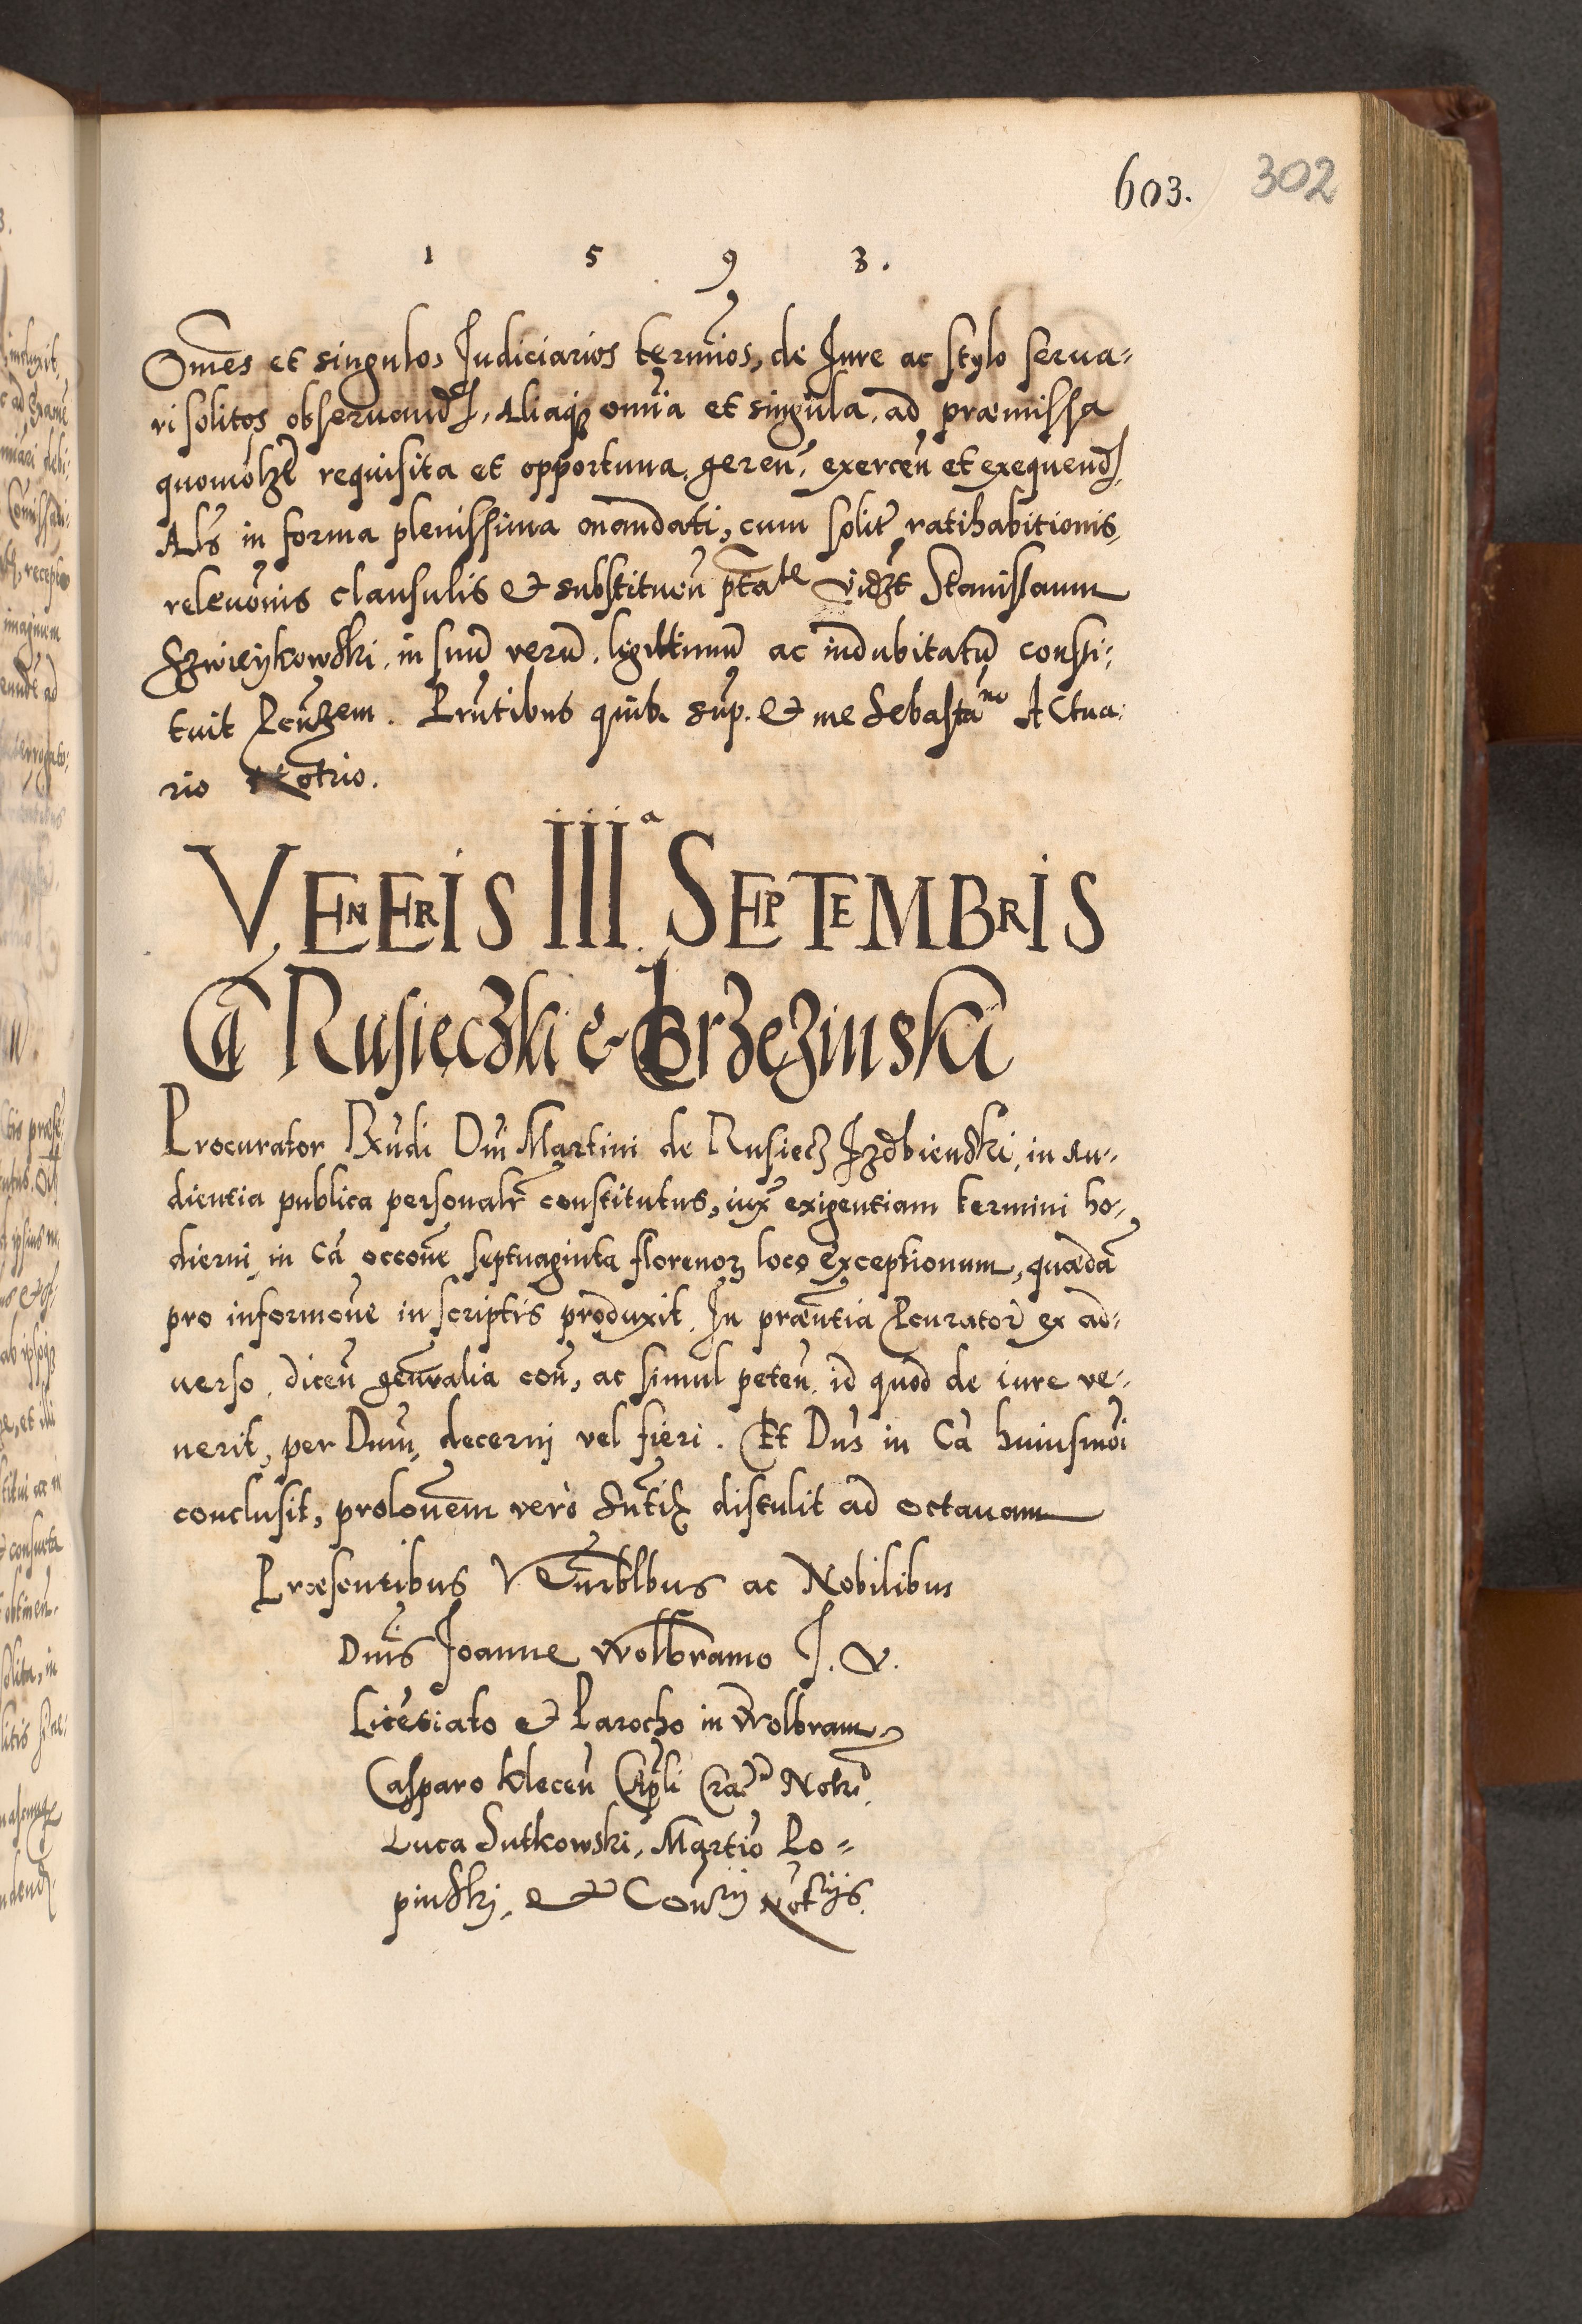 603. 302
1 5 9 3.
Om̃es et singulos Judiciarios termĩos, de Jure ac stylo serua=
ri solitos obseruand. Aliaqȝ omĩa et singula, ad præmissa
quomolȝt requisita et opportuna, gereñ, exerceñ et exequend,
Als̃ in forma plenissima mandati, cum solit ratihabitionis,
releuõnis clausulis & substitueñ p̃tate Stanislaum
in suũ verũ, legittimũ ac indubitatũ consti=
tuit Pcuȝem. Pñtibus quib. sup. & me Sebastiano Actua=
rio Notrio.
VENERIS IIIª SEPTEMBRIS
Cã Rusieczki & Brzezinski
Procurator Rx̃udi Dñi Martini de Rusiecz Izdbienski, in Au=
dientia publica personalr̃ constitutus, iux̃ exigentiam termini ho=
dierni, in cã occoñe septuaginta florenoȝ loco exceptionum, quædã
pro informoñe in scriptis produxit. In præntia Pcuratoĩ ex ad=
uerso, diceñ generalia coñ, ac simul peteñ, id quod de iure ve=
nerit, per Dñum, decerni vel fieri. Et Dñs in Cã huiusmõi
conclusit, proloñem verò Sñtiȝ distulit ad octauam
Præsentibus Veñrblbus ac Nobilibus
Dñis Joanne Wolbramo J. V.
Licẽtiato & Parocho in Wolbram,
Casparo Kleceñ Cap̃li Notrio,
Luca Sutkowski, Martiõ Lo=
pinski, & Coñsrij Notrijs.